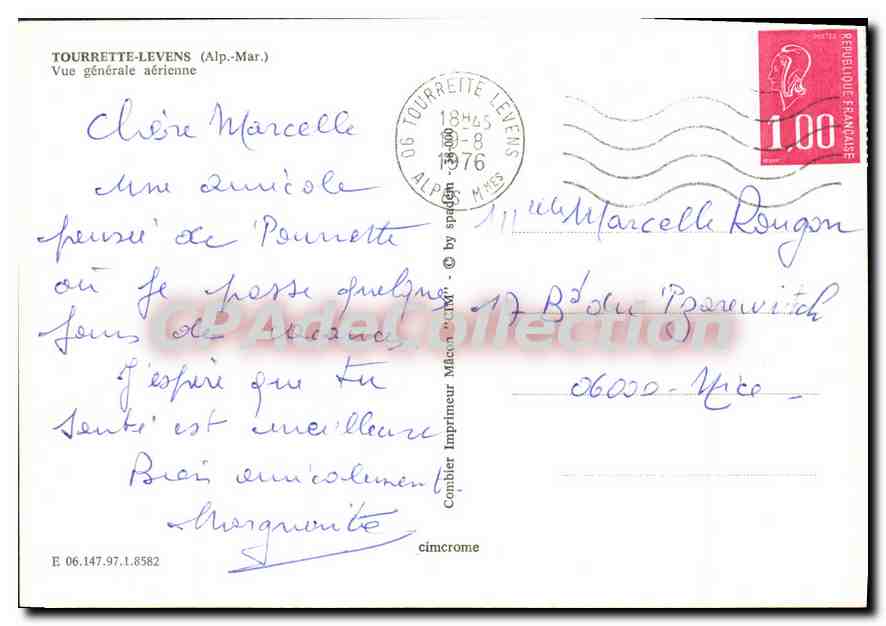 TOURRETTE-LEVENS (Alp.-Mar.)
Vue générale aérienne
Chère Marcelle
une amicale
pensée de Tourrette
où je passe quelques
jours de vacances
J'espère que tu
santé est meilleure
Bien amicalement.
Marguerite
E 06.147.97.1.8582
cimcrome
Combier Imprimeur Mâcon "CIM" - © by spadem - 38-000
06 TOURRETTE LEVENS
18H45
-8
1976
ALPES MMES
POSTES
REPUBLIQUE FRANÇAISE
1,00
Melle Marcelle Rougon
17 Bd du Tzarewitch
06000 - Nice -
CPAdeCollection